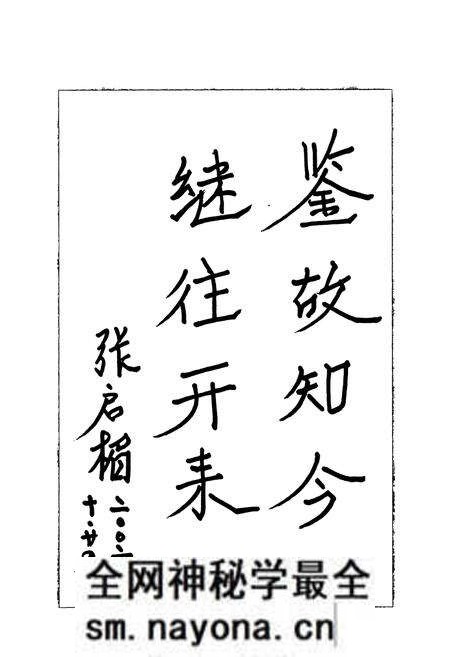 鉴故知今
继往开来
张启
二〇〇
十·廿
全网神秘学最全
sm.nayona.cn